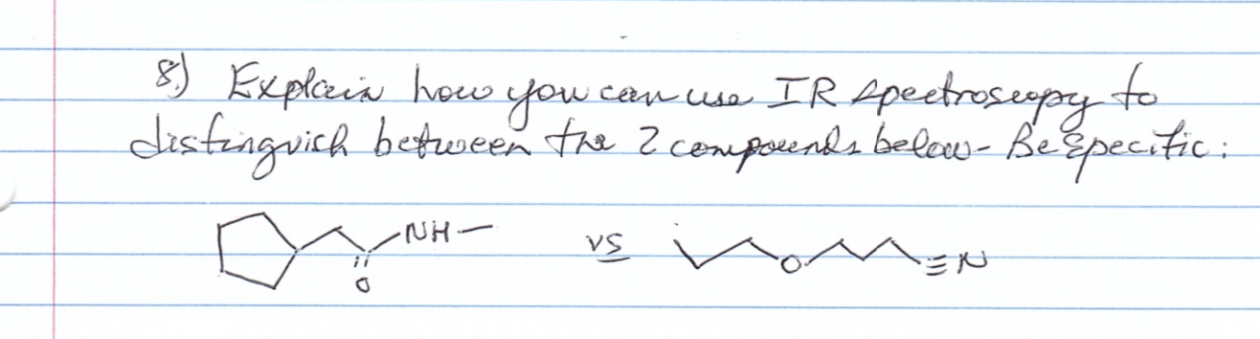 8) Explain how you can use IR spectroscopy to
distinguish between the 2 compounds below - Be Specific:
NH
O
vs
O
≡N